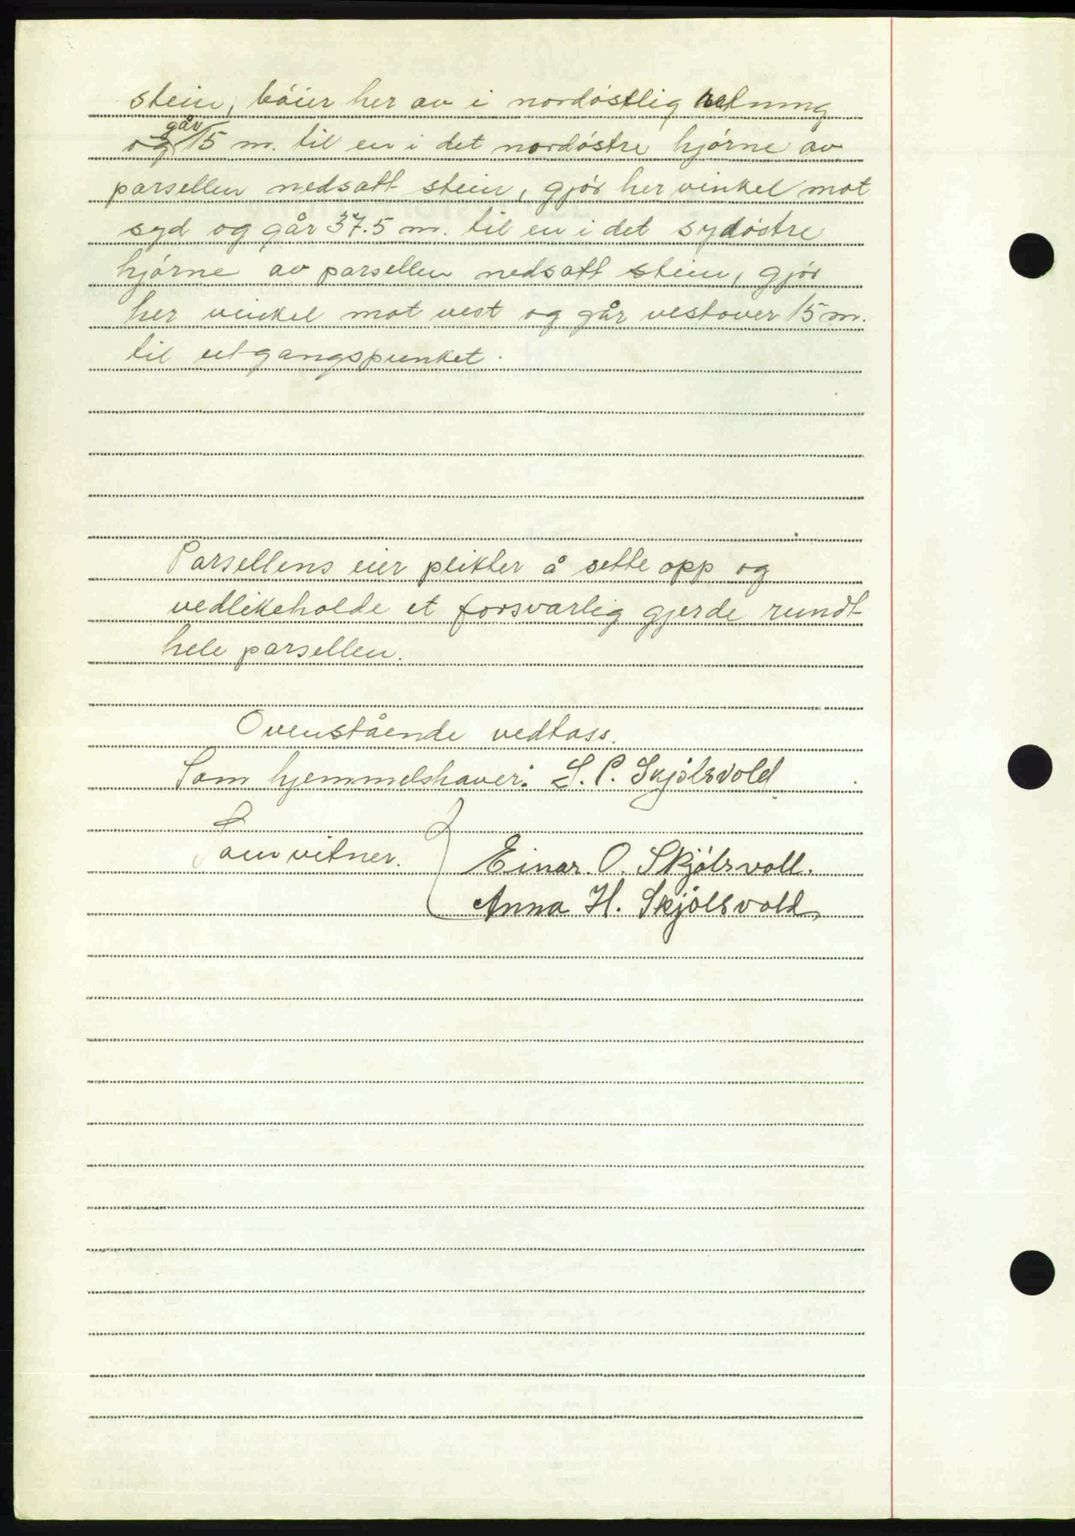 stein, bóier her av i nordóstlig retning
og går 15 m. til en i det nordóstre hjórne av
parsellen nedsatt stein, gjór her vinkel mot
syd og går 37.5 m. til en i det sydóstre
hjórne av parsellen nedsatt stein, gjór
her vinkel mot vest og går vestover 15 m.
til utgangspunket.
Parsellens eier plikter å sette opp og
vedlikeholde et forsvarlig gjerde rundt
hele parsellen.
Ovenstående vedtass.
Som hjemmelshaver: S. P. Skjólsvold
Som vitner. Einar. O. Skjólsvoll.
Anna H. Skjólsvold,